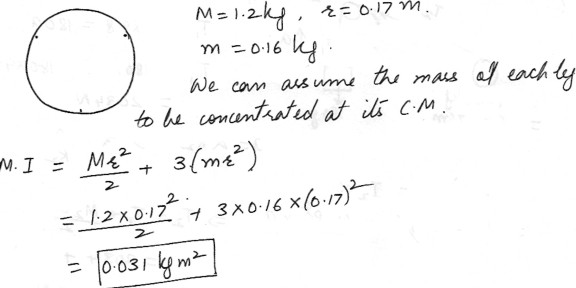 M = 1.2 kg, r = 0.17 m.
m = 0.16 kg.
We can assume the mass of each leg
to be concentrated at its C.M.
M.I = Mr²/2 + 3(mr²)
= 1.2 x 0.17²/2 + 3 x 0.16 x (0.17)²
= 0.031 kg m²